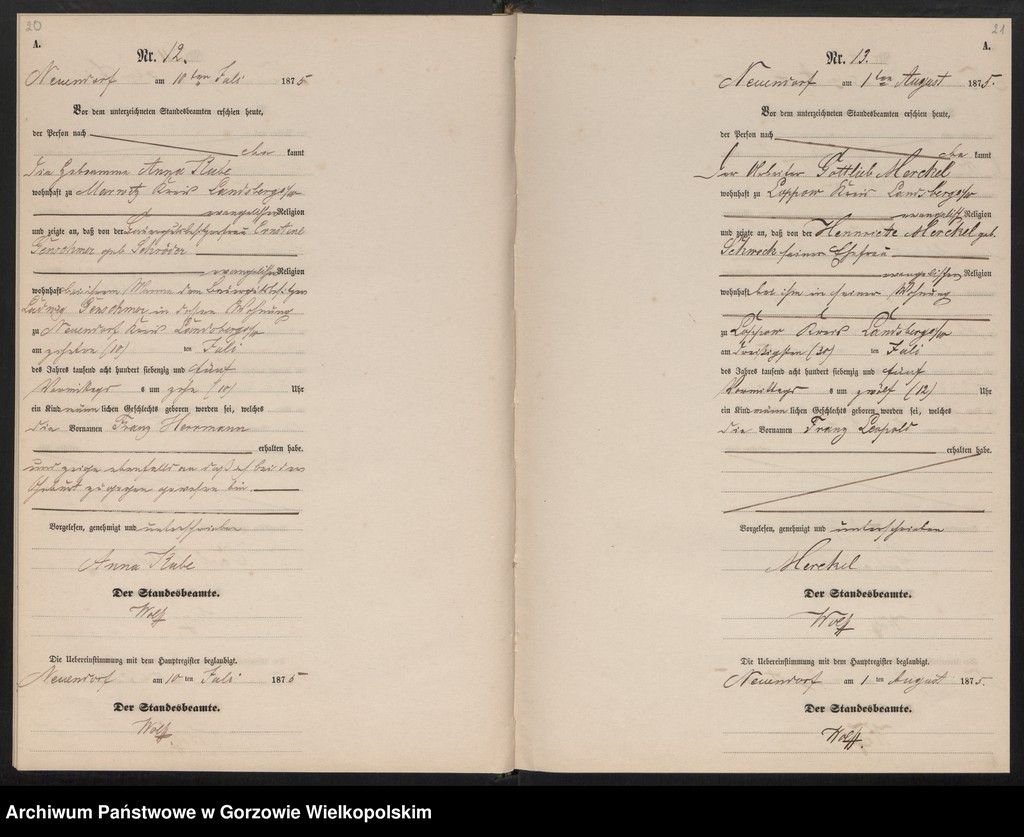 20
A.
Nr. 12.
Neuendorf am 10 ten Juli 1875
Vor dem unterzeichneten Standesbeamten erschien heute,
der Person nach
kannt
die Hebamme Anna Kube
wohnhaft zu Marwitz Kreis Landsberg a/W
evangelischer Religion
und zeigte an, daß von der Ernstine
geb Schröder
evangelischer Religion
wohnhaft bei ihrem Manne dem
Ludwig in dessen Wohnung
zu Neuendorf Kreis Landsberg a/W
am zehnten (10) ten Juli
des Jahres tausend acht hundert siebenzig und fünf
Vormittags s um zehn (10) Uhr
ein Kind männlichen Geschlechts geboren worden sei, welches
die Vornamen Franz Herrmann
erhalten habe.
und zeige ebenfalls an daß ich bei der
Geburt zugegen gewesen bin.
Vorgelesen, genehmigt und unterschrieben
Anna Kube
Der Standesbeamte.
Wolff
Die Uebereinstimmung mit dem Hauptregister beglaubigt.
Neuendorf am 10 ten Juli 1875
Der Standesbeamte.
Wolff.
21
A.
Nr. 13.
Neuendorf am 1 ten August 1875.
Vor dem unterzeichneten Standesbeamten erschien heute,
der Person nach
kannt
Der Arbeiter Gottlieb Merchel
wohnhaft zu Loppow Kreis Landsberg a/W
evangelisch Religion
und zeigte an, daß von der Henriette Merchel geb.
Schwock seiner Ehefrau
evangelischen Religion
wohnhaft bei ihm in seiner Wohnung
zu Loppow Kreis Landsberg a/W
am dreißigsten (30) ten Juli
des Jahres tausend acht hundert siebenzig und fünf
Vormittags s um zwölf (12) Uhr
ein Kind männlichen Geschlechts geboren worden sei, welches
die Vornamen Franz Leopold
erhalten habe.
Vorgelesen, genehmigt und unterschrieben
Merchel
Der Standesbeamte.
Wolff
Die Uebereinstimmung mit dem Hauptregister beglaubigt.
Neuendorf am 1 ten August 1875.
Der Standesbeamte.
Wolff.
Archiwum Państwowe w Gorzowie Wielkopolskim